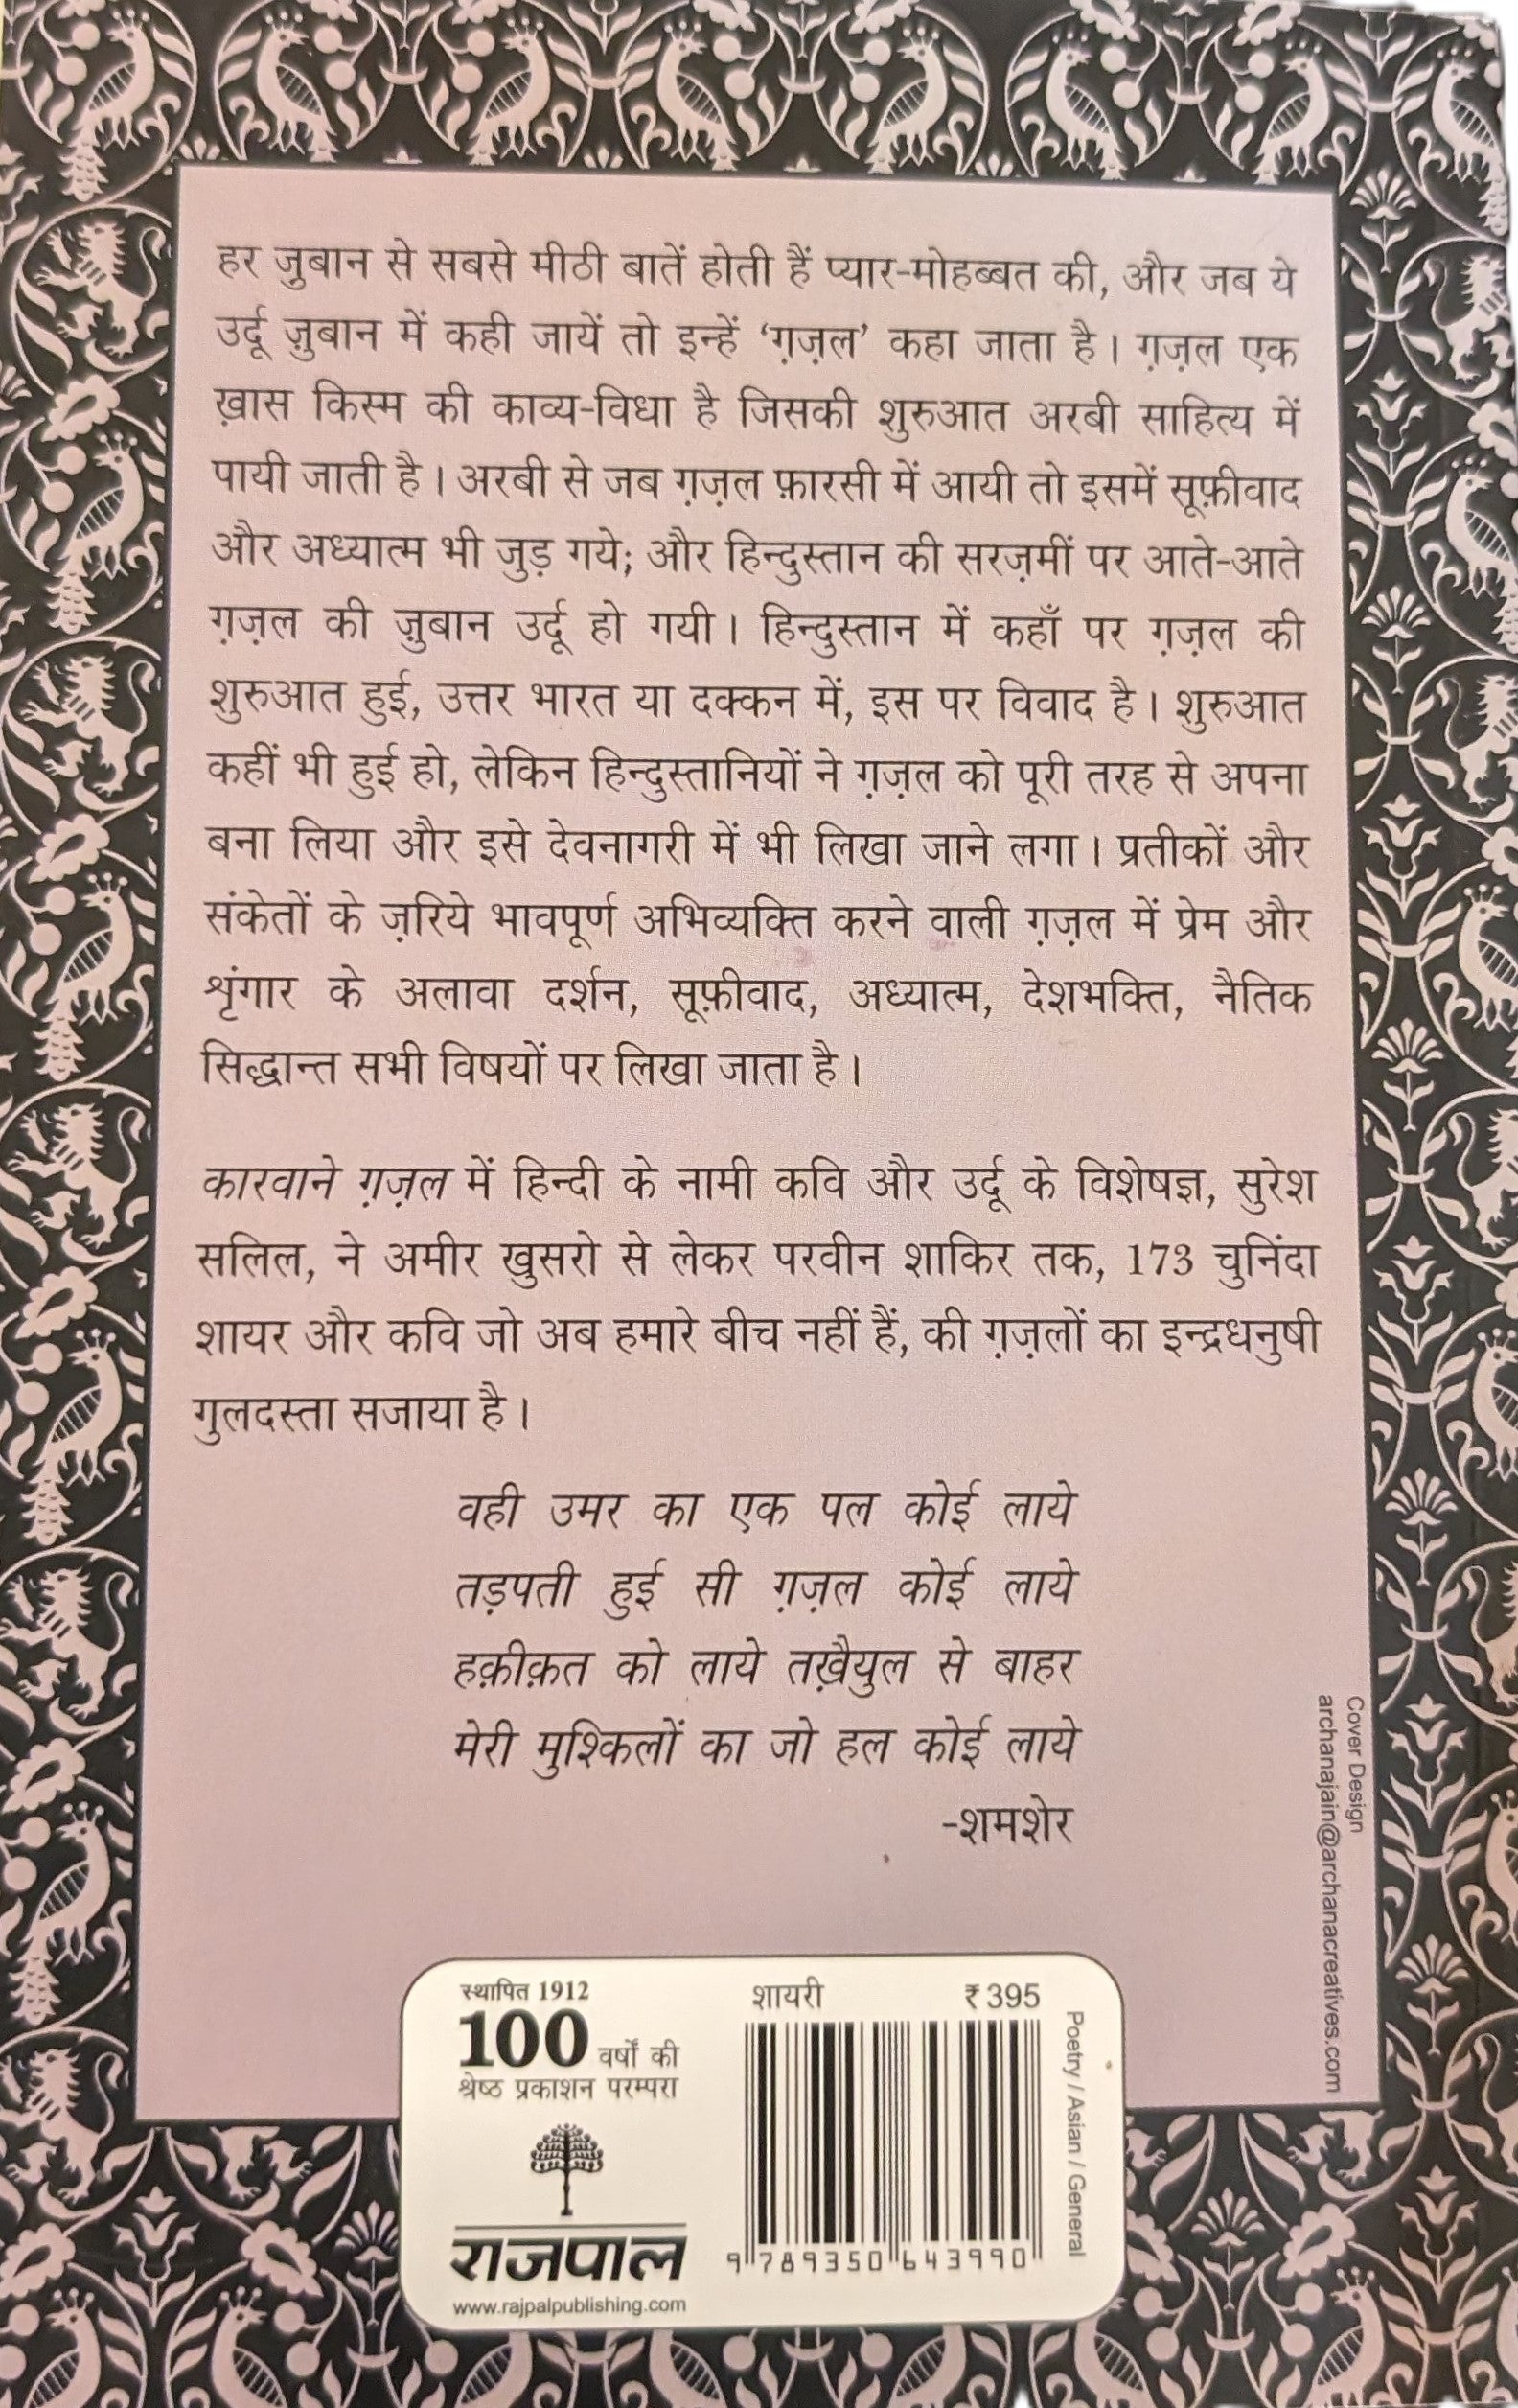 हर जुबान से सबसे मीठी बातें होती हैं प्यार-मोहब्बत की, और जब ये
उर्दू ज़ुबान में कही जायें तो इन्हें ‘ग़ज़ल’ कहा जाता है। ग़ज़ल एक
ख़ास किस्म की काव्य-विधा है जिसकी शुरुआत अरबी साहित्य में
पायी जाती है। अरबी से जब ग़ज़ल फ़ारसी में आयी तो इसमें सूफ़ीवाद
और अध्यात्म भी जुड़ गये; और हिन्दुस्तान की सरज़मीं पर आते-आते
ग़ज़ल की ज़ुबान उर्दू हो गयी। हिन्दुस्तान में कहाँ पर ग़ज़ल की
शुरुआत हुई, उत्तर भारत या दक्कन में, इस पर विवाद है। शुरुआत
कहीं भी हुई हो, लेकिन हिन्दुस्तानियों ने ग़ज़ल को पूरी तरह से अपना
बना लिया और इसे देवनागरी में भी लिखा जाने लगा। प्रतीकों और
संकेतों के ज़रिये भावपूर्ण अभिव्यक्ति करने वाली ग़ज़ल में प्रेम और
शृंगार के अलावा दर्शन, सूफ़ीवाद, अध्यात्म, देशभक्ति, नैतिक
सिद्धान्त सभी विषयों पर लिखा जाता है।
कारवाने ग़ज़ल में हिन्दी के नामी कवि और उर्दू के विशेषज्ञ, सुरेश
सलिल, ने अमीर खुसरो से लेकर परवीन शाकिर तक, 173 चुनिंदा
शायर और कवि जो अब हमारे बीच नहीं हैं, की ग़ज़लों का इन्द्रधनुषी
गुलदस्ता सजाया है।
वही उमर का एक पल कोई लाये
तड़पती हुई सी ग़ज़ल कोई लाये
हक़ीक़त को लाये तख़ैयुल से बाहर
मेरी मुश्किलों का जो हल कोई लाये
-शमशेर
Cover Design
archanajain@archanacreatives.com
स्थापित 1912
100 वर्षों की
श्रेष्ठ प्रकाशन परम्परा
राजपाल
www.rajpalpublishing.com
शायरी ₹ 395
9 789350 643990
Poetry / Asian / General